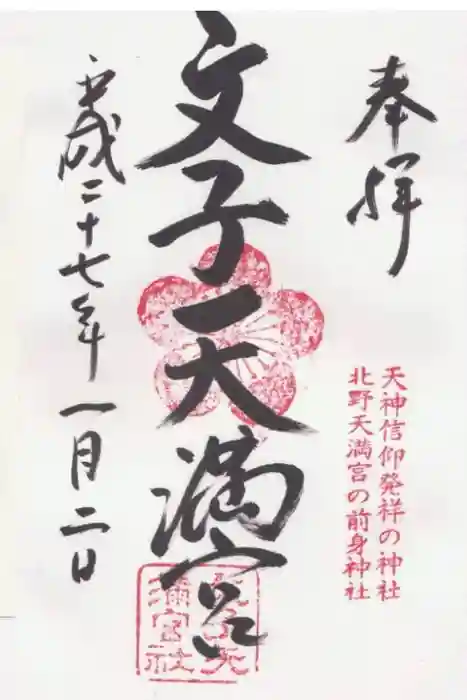 奉拝
天神信仰発祥の神社
北野天満宮の前身神社
文子天満宮
平成二十七年一月二日
文子天
満宮社